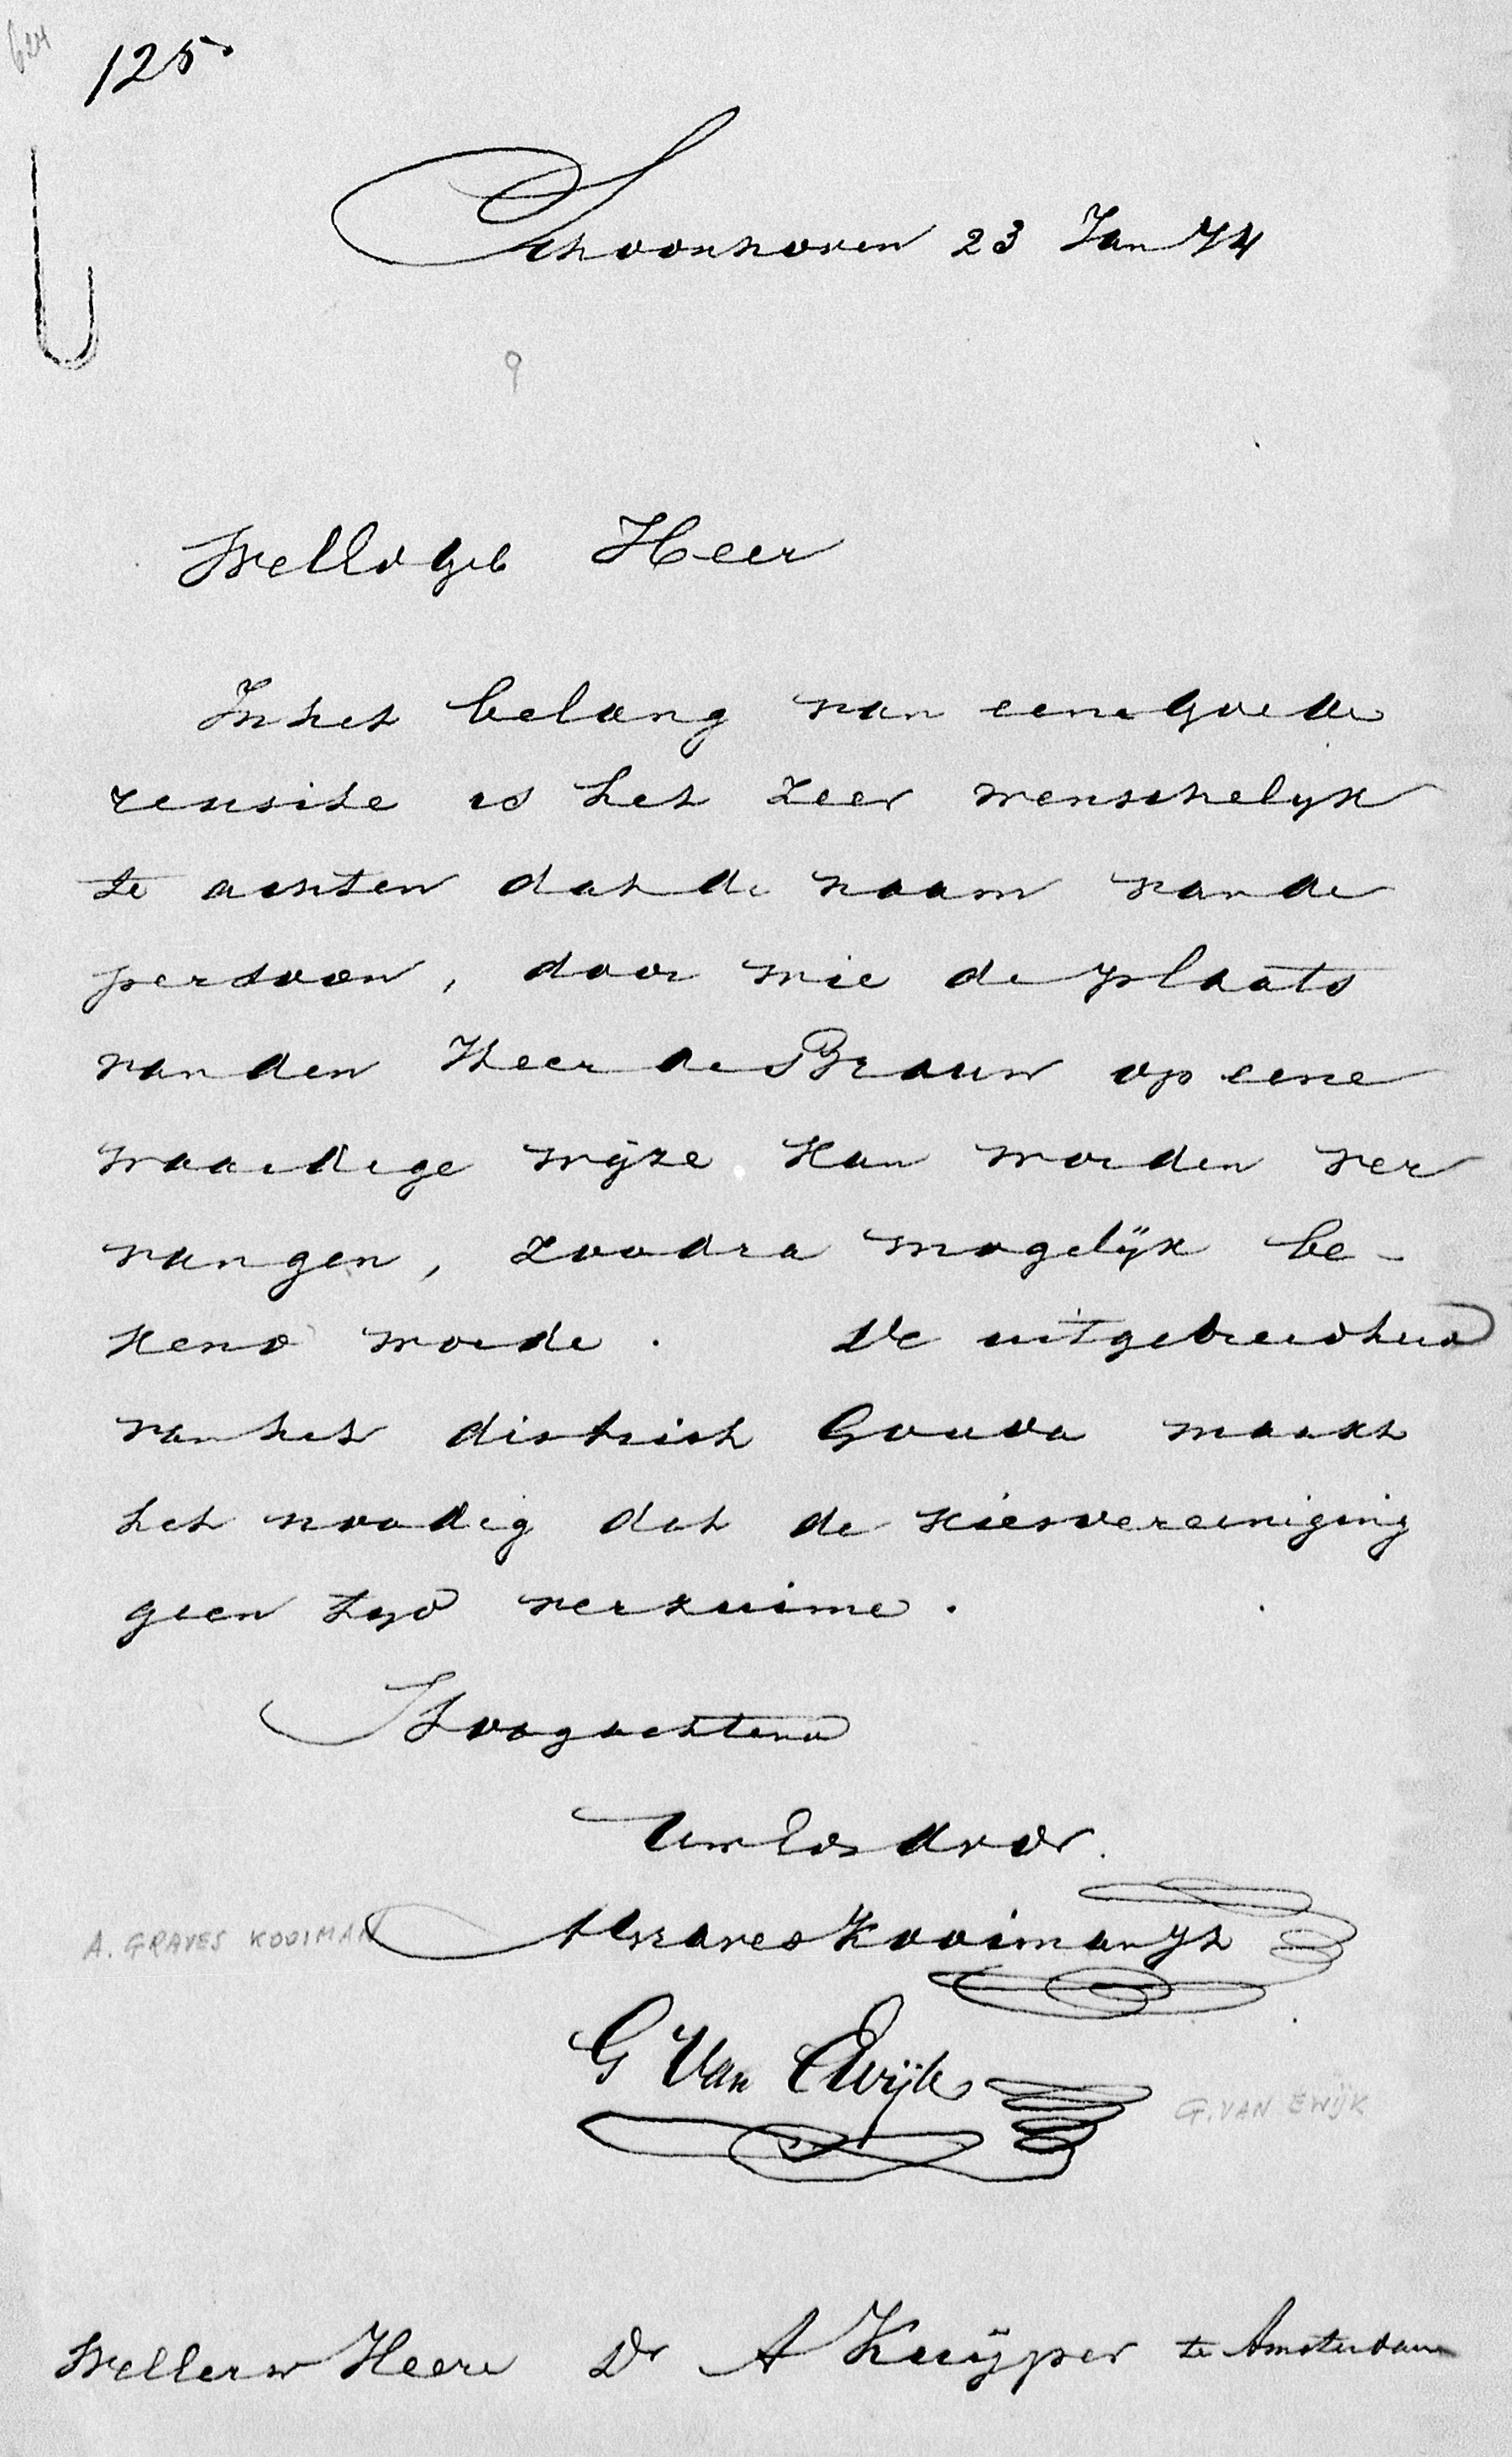 125
Schoonhoven 23 Jan 74
9
WelEdgeb Heer
In het belang van eene goede
reusite is het zeer wenschelijk
te achten dat de naam van de
persoon, door wie de plaats
van den Heer de Brauw op eene
waardige wijze kan worden ver
vangen, zoodra mogelijk be-
kend worde. De uitgebreidheid
van het district Gouda maakt
het noodig dat de kiesvereeniging
geen tijd verzuime.
Hoogachtend
Uw Ed dv dr.
A Graves Kooiman
A. GRAVES KOOIMAN
G Van Ewijk
G. VAN EWIJK
WelEerw Heere Dr A Kuijper te Amsterdam